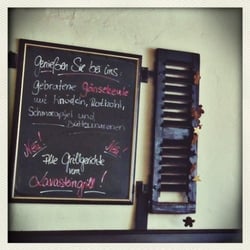 Genießen Sie bei uns:
gebratene Gänsekeule
mit Knödeln, Rotkohl,
Schmorapfel und
Neu! Neu!
Alle Grillgerichte
vom
Lavasteingrill!